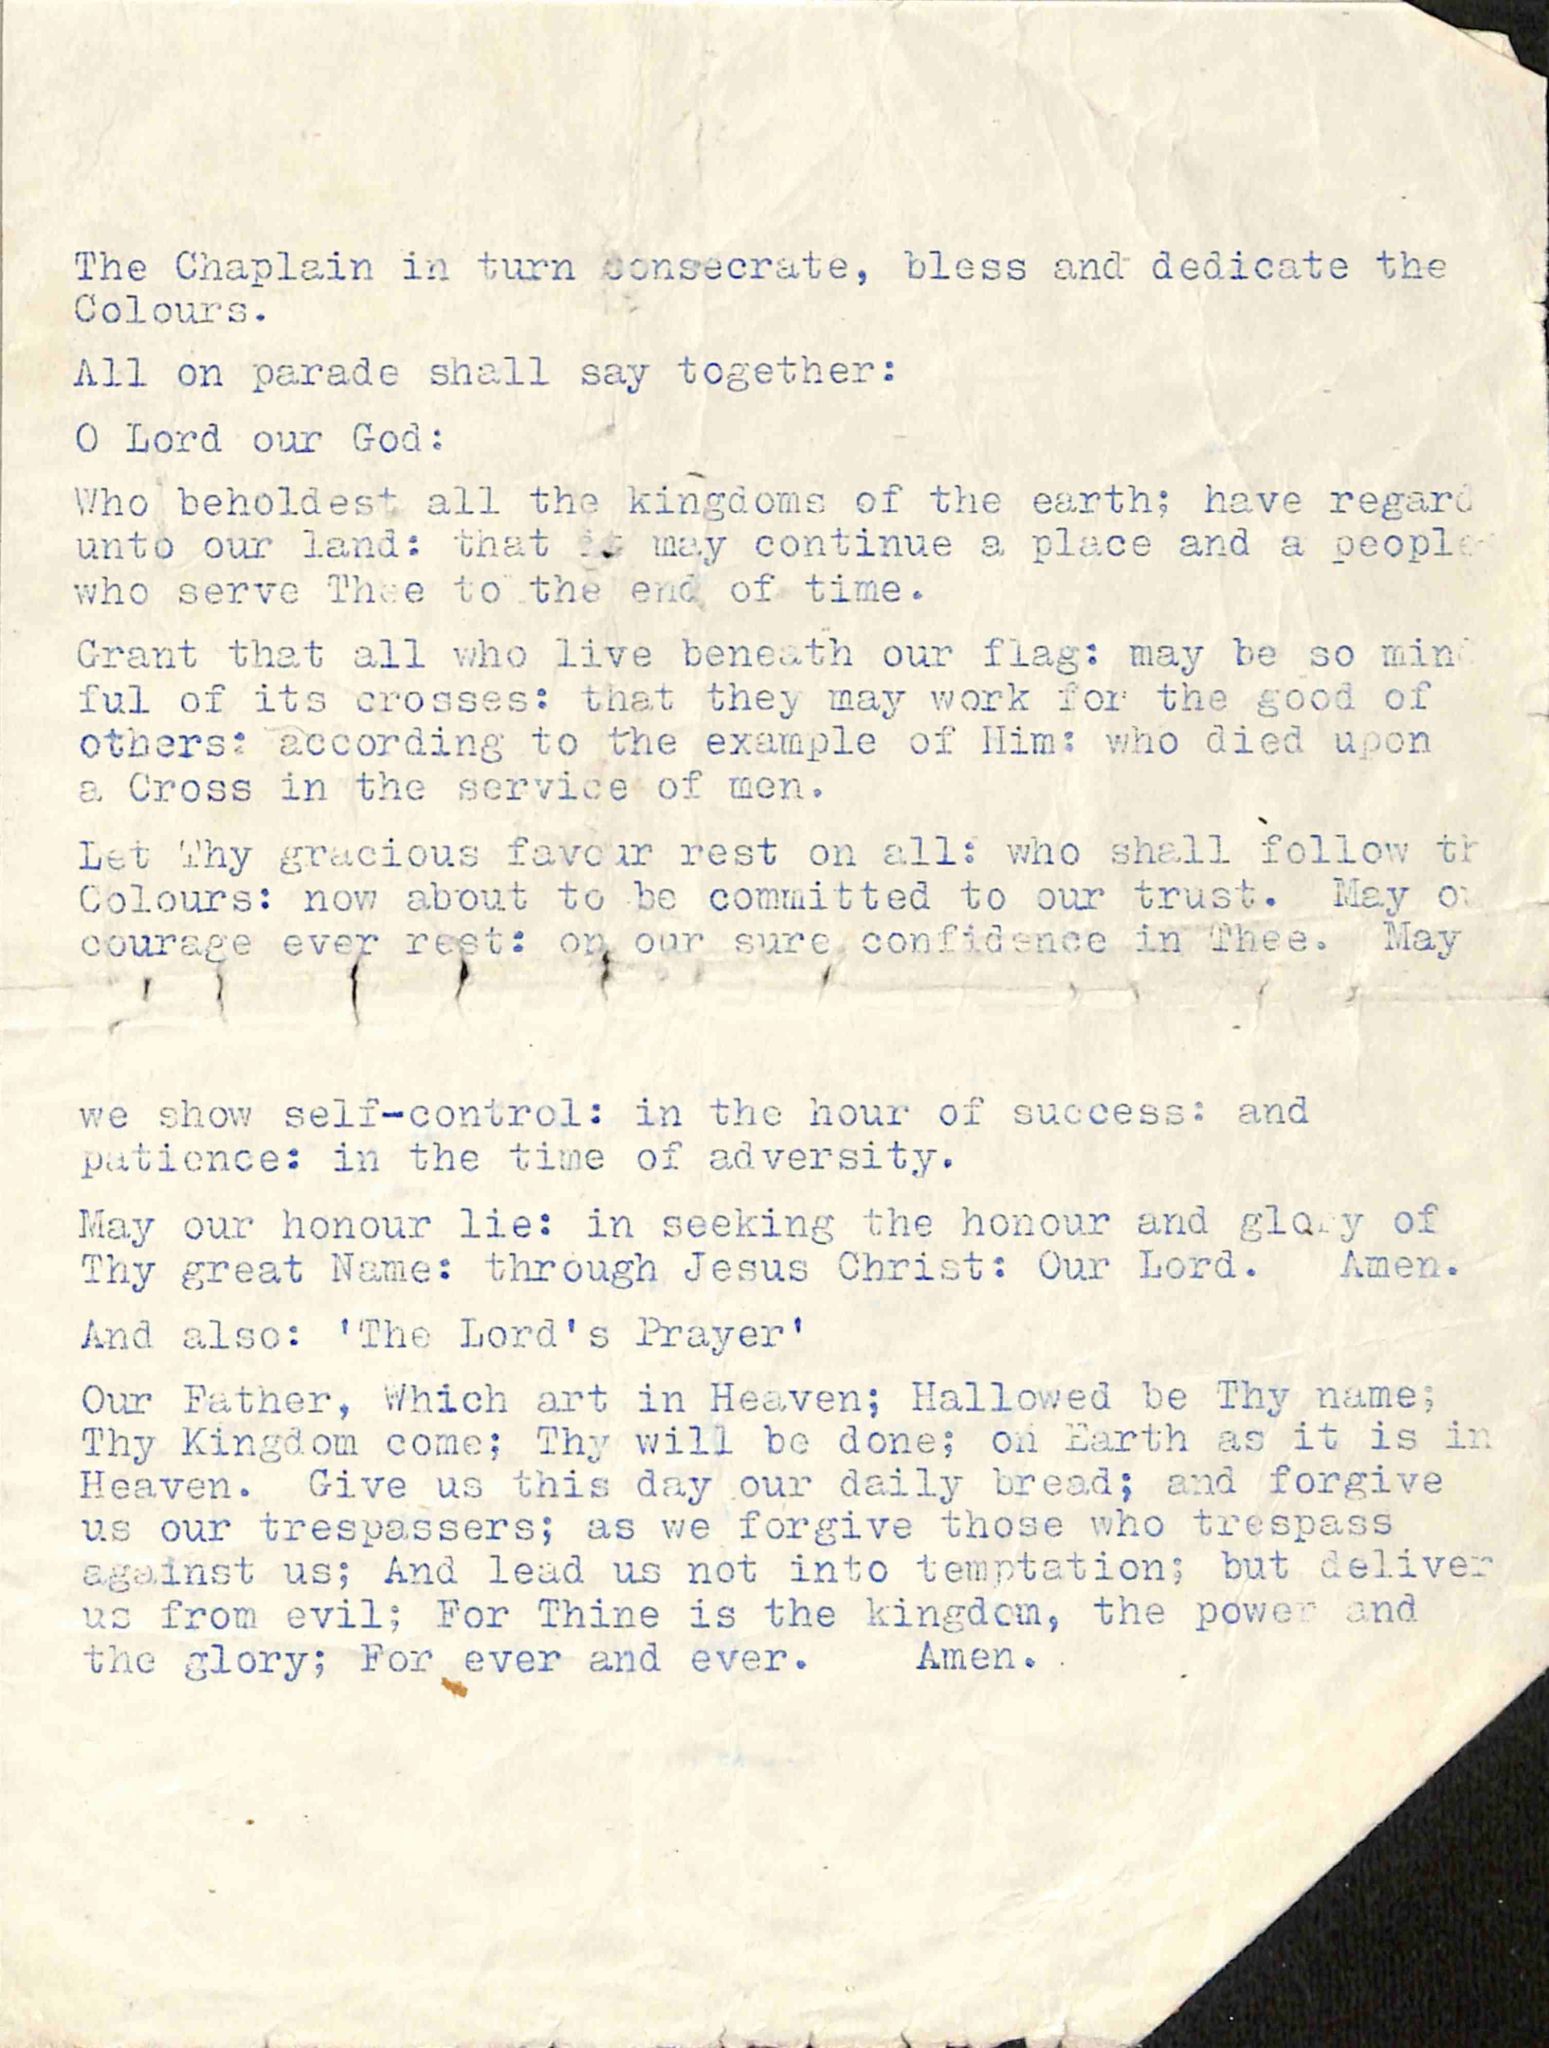 The Chaplain in turn consecrate, bless and dedicate the
Colours.
All on parade shall say together:
O Lord our God:
Who beholdest all the kingdoms of the earth; have regard
unto our land: that it may continue a place and a people
who serve Thee to the end of time.
Grant that all who live beneath our flag: may be so mind
ful of its crosses: that they may work for the good of
others: according to the example of Him: who died upon
a Cross in the service of men.
Let Thy gracious favour rest on all: who shall follow th
Colours: now about to be committed to our trust. May ou
courage ever rest: on our sure confidence in Thee. May
we show self-control: in the hour of success: and
patience: in the time of adversity.
May our honour lie: in seeking the honour and glory of
Thy great Name: through Jesus Christ: Our Lord. Amen.
And also: 'The Lord's Prayer'
Our Father, Which art in Heaven; Hallowed be Thy name;
Thy Kingdom come; Thy will be done; on Earth as it is in
Heaven. Give us this day our daily bread; and forgive
us our trespassers; as we forgive those who trespass
against us; And lead us not into temptation; but deliver
us from evil; For Thine is the kingdom, the power and
the glory; For ever and ever. Amen.